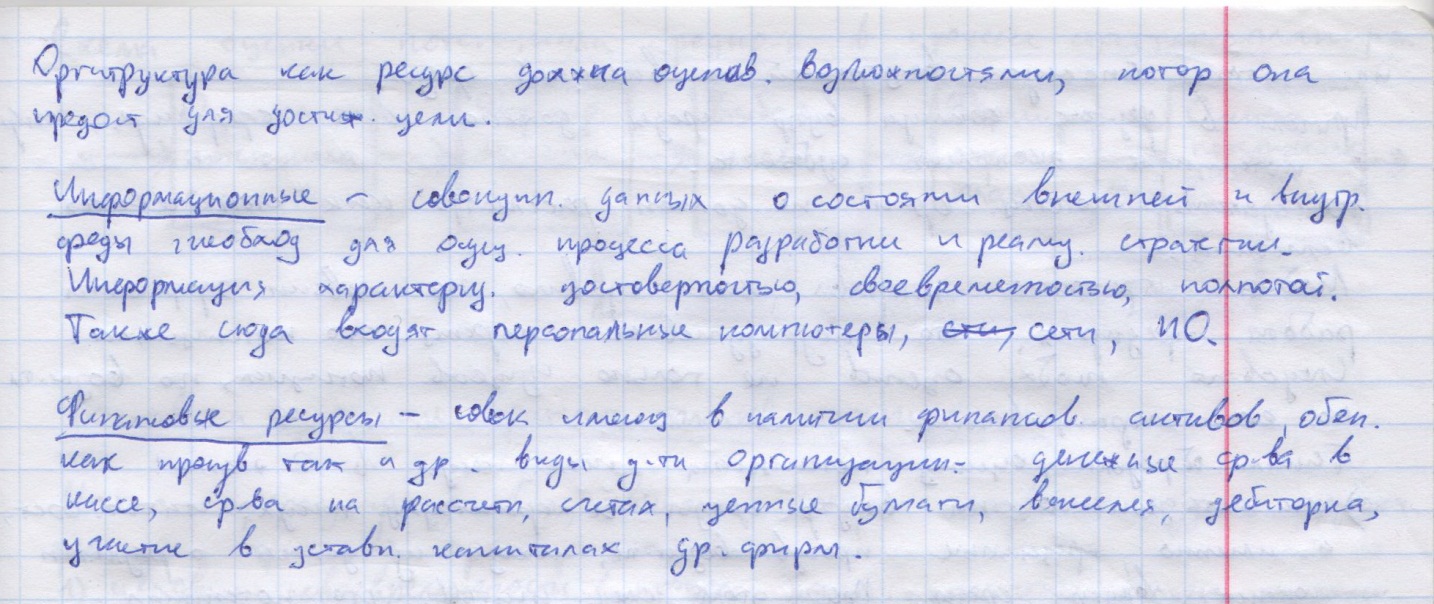 Оргструктура как ресурс должна оценив. возможностями, котор она
предост для достиж. цели.
Информационные – совокупн. данных о состоянии внешней и внутр.
среды, необход для осущ. процесса разработки и реализ. стратегии.
Информация характериз. достоверностью, своевременностью, полнотой.
Также сюда входят персональные компьютеры, сети, ПО.
Финансовые ресурсы – совок имеющ в наличии финансов. активов, обесп.
как произв так и др. виды д-ти организации: денежные ср-ва в
кассе, ср-ва на рассчетн. счетах, ценные бумаги, векселя, дебиторка,
участие в уставн. капиталах др. фирм.